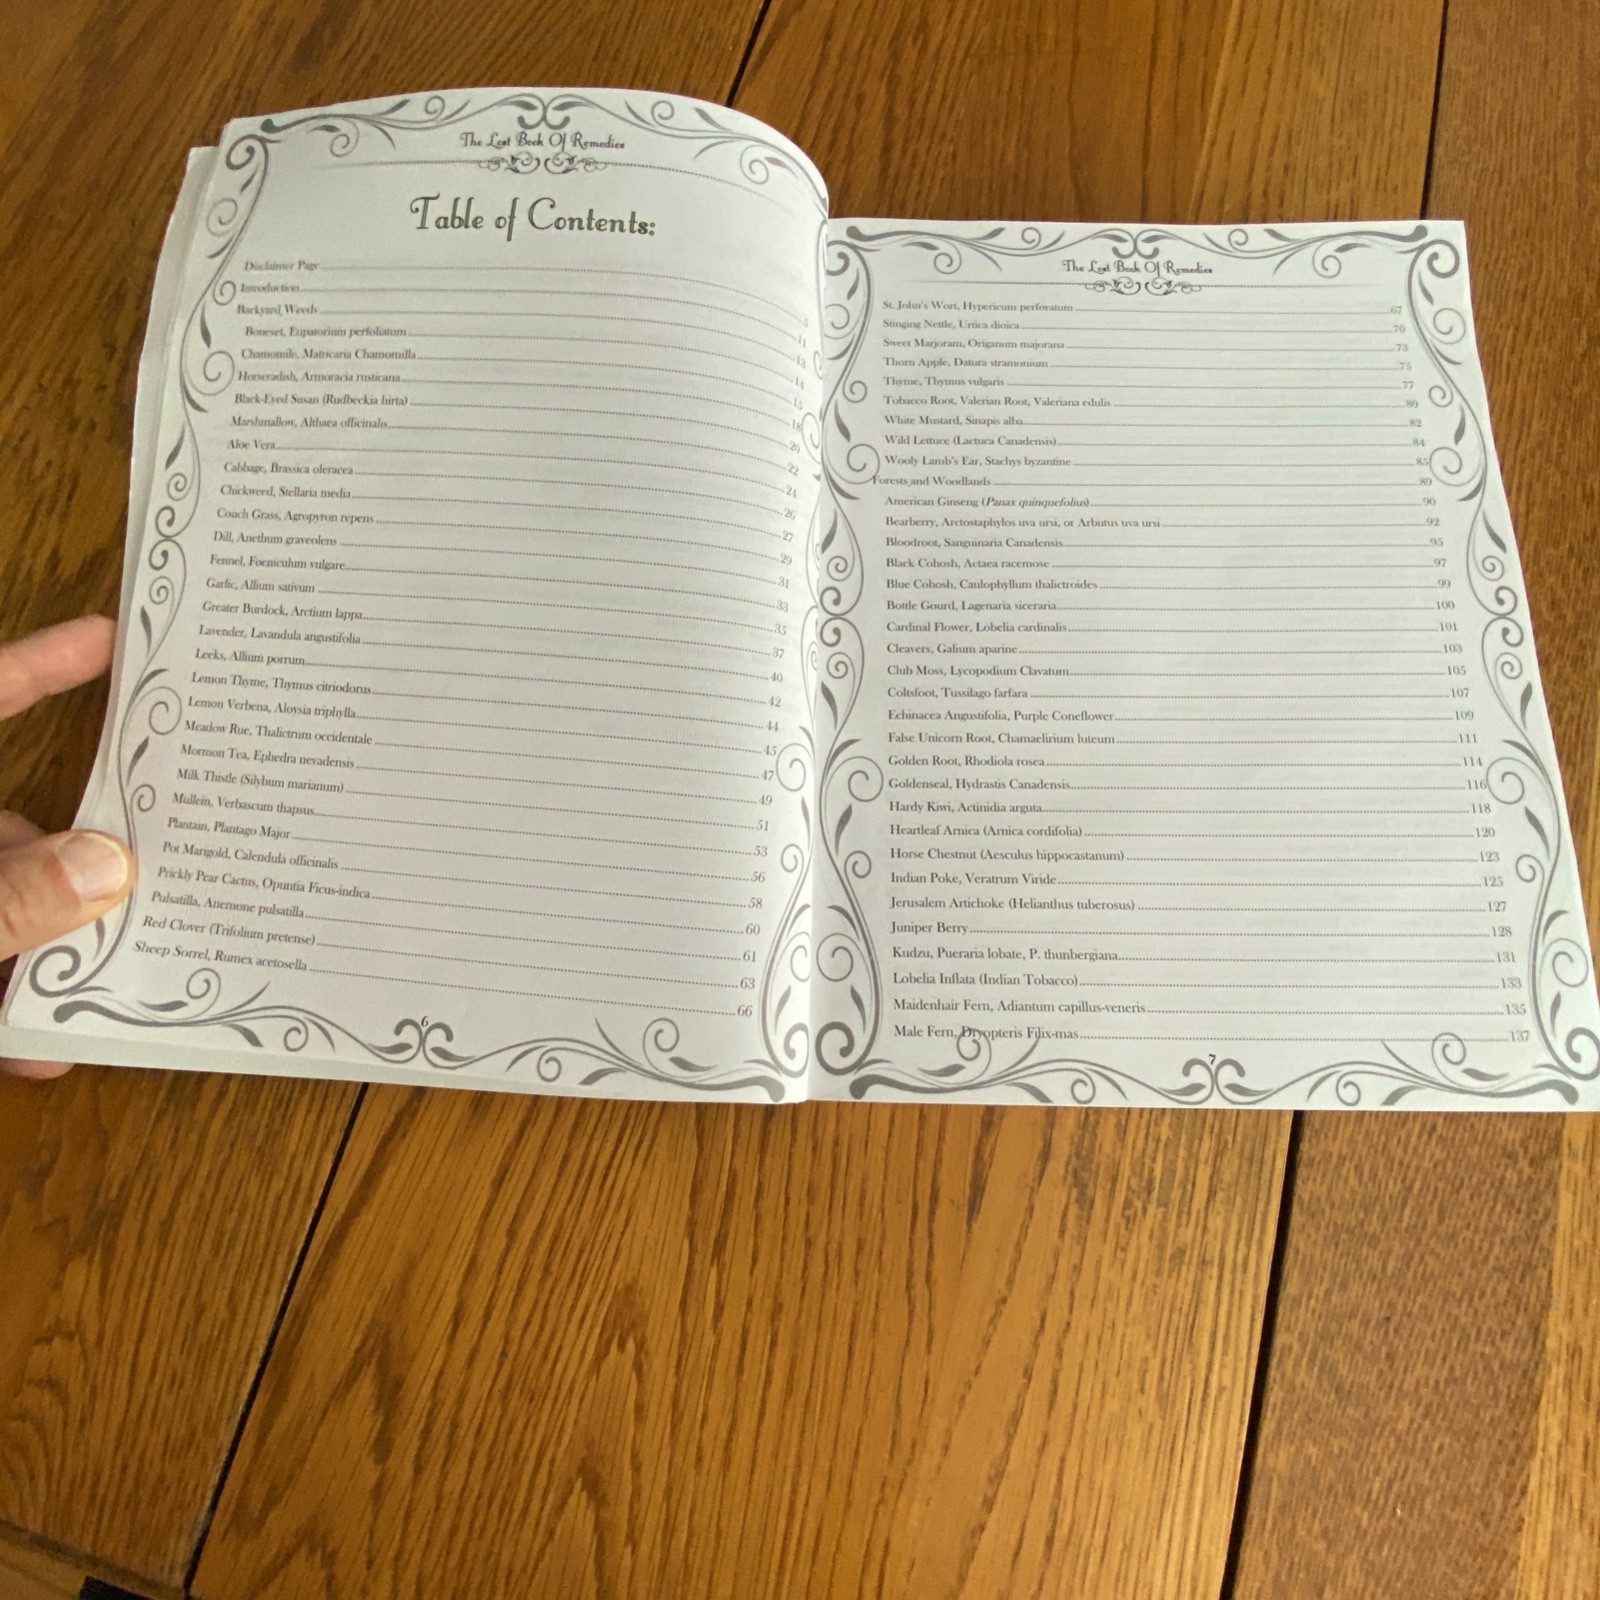 The Lost Book Of Remedies
Table of Contents:
Disclaimer Page ........ 5
Introduction ........ 11
Backyard Weeds ........ 13
Boneset, Eupatorium perfoliatum ........ 14
Chamomile, Matricaria Chamomilla ........ 15
Horseradish, Armoracia rusticana ........ 18
Black-Eyed Susan (Rudbeckia hirta) ........ 20
Marshmallow, Althaea officinalis ........ 22
Aloe Vera ........ 24
Cabbage, Brassica oleracea ........ 26
Chickweed, Stellaria media ........ 27
Couch Grass, Agropyron repens ........ 29
Dill, Anethum graveolens ........ 31
Fennel, Foeniculum vulgare ........ 33
Garlic, Allium sativum ........ 35
Greater Burdock, Arctium lappa ........ 37
Lavender, Lavandula angustifolia ........ 40
Leeks, Allium porrum ........ 42
Lemon Thyme, Thymus citriodorus ........ 44
Lemon Verbena, Aloysia triphylla ........ 45
Meadow Rue, Thalictrum occidentale ........ 47
Mormon Tea, Ephedra nevadensis ........ 49
Milk Thistle (Silybum marianum) ........ 51
Mullein, Verbascum thapsus ........ 53
Plantain, Plantago Major ........ 56
Pot Marigold, Calendula officinalis ........ 58
Prickly Pear Cactus, Opuntia Ficus-indica ........ 60
Pulsatilla, Anemone pulsatilla ........ 61
Red Clover (Trifolium pretense) ........ 63
Sheep Sorrel, Rumex acetosella ........ 66
6
The Lost Book Of Remedies
St. John's Wort, Hypericum perforatum ........ 67
Stinging Nettle, Urtica dioica ........ 70
Sweet Marjoram, Origanum majorana ........ 73
Thorn Apple, Datura stramonium ........ 75
Thyme, Thymus vulgaris ........ 77
Tobacco Root, Valerian Root, Valeriana edulis ........ 80
White Mustard, Sinapis alba ........ 82
Wild Lettuce (Lactuca Canadensis) ........ 84
Wooly Lamb's Ear, Stachys byzantine ........ 85
Forests and Woodlands ........ 89
American Ginseng (Panax quinquefolius) ........ 90
Bearberry, Arctostaphylos uva ursi, or Arbutus uva ursi ........ 92
Bloodroot, Sanguinaria Canadensis ........ 95
Black Cohosh, Actaea racemose ........ 97
Blue Cohosh, Caulophyllum thalictroides ........ 99
Bottle Gourd, Lagenaria siceraria ........ 100
Cardinal Flower, Lobelia cardinalis ........ 101
Cleavers, Galium aparine ........ 103
Club Moss, Lycopodium Clavatum ........ 105
Coltsfoot, Tussilago farfara ........ 107
Echinacea Angustifolia, Purple Coneflower ........ 109
False Unicorn Root, Chamaelirium luteum ........ 111
Golden Root, Rhodiola rosea ........ 114
Goldenseal, Hydrastis Canadensis ........ 116
Hardy Kiwi, Actinidia arguta ........ 118
Heartleaf Arnica (Arnica cordifolia) ........ 120
Horse Chestnut (Aesculus hippocastanum) ........ 123
Indian Poke, Veratrum Viride ........ 125
Jerusalem Artichoke (Helianthus tuberosus) ........ 127
Juniper Berry ........ 128
Kudzu, Pueraria lobate, P. thunbergiana ........ 131
Lobelia Inflata (Indian Tobacco) ........ 133
Maidenhair Fern, Adiantum capillus-veneris ........ 135
Male Fern, Dryopteris Filix-mas ........ 137
7